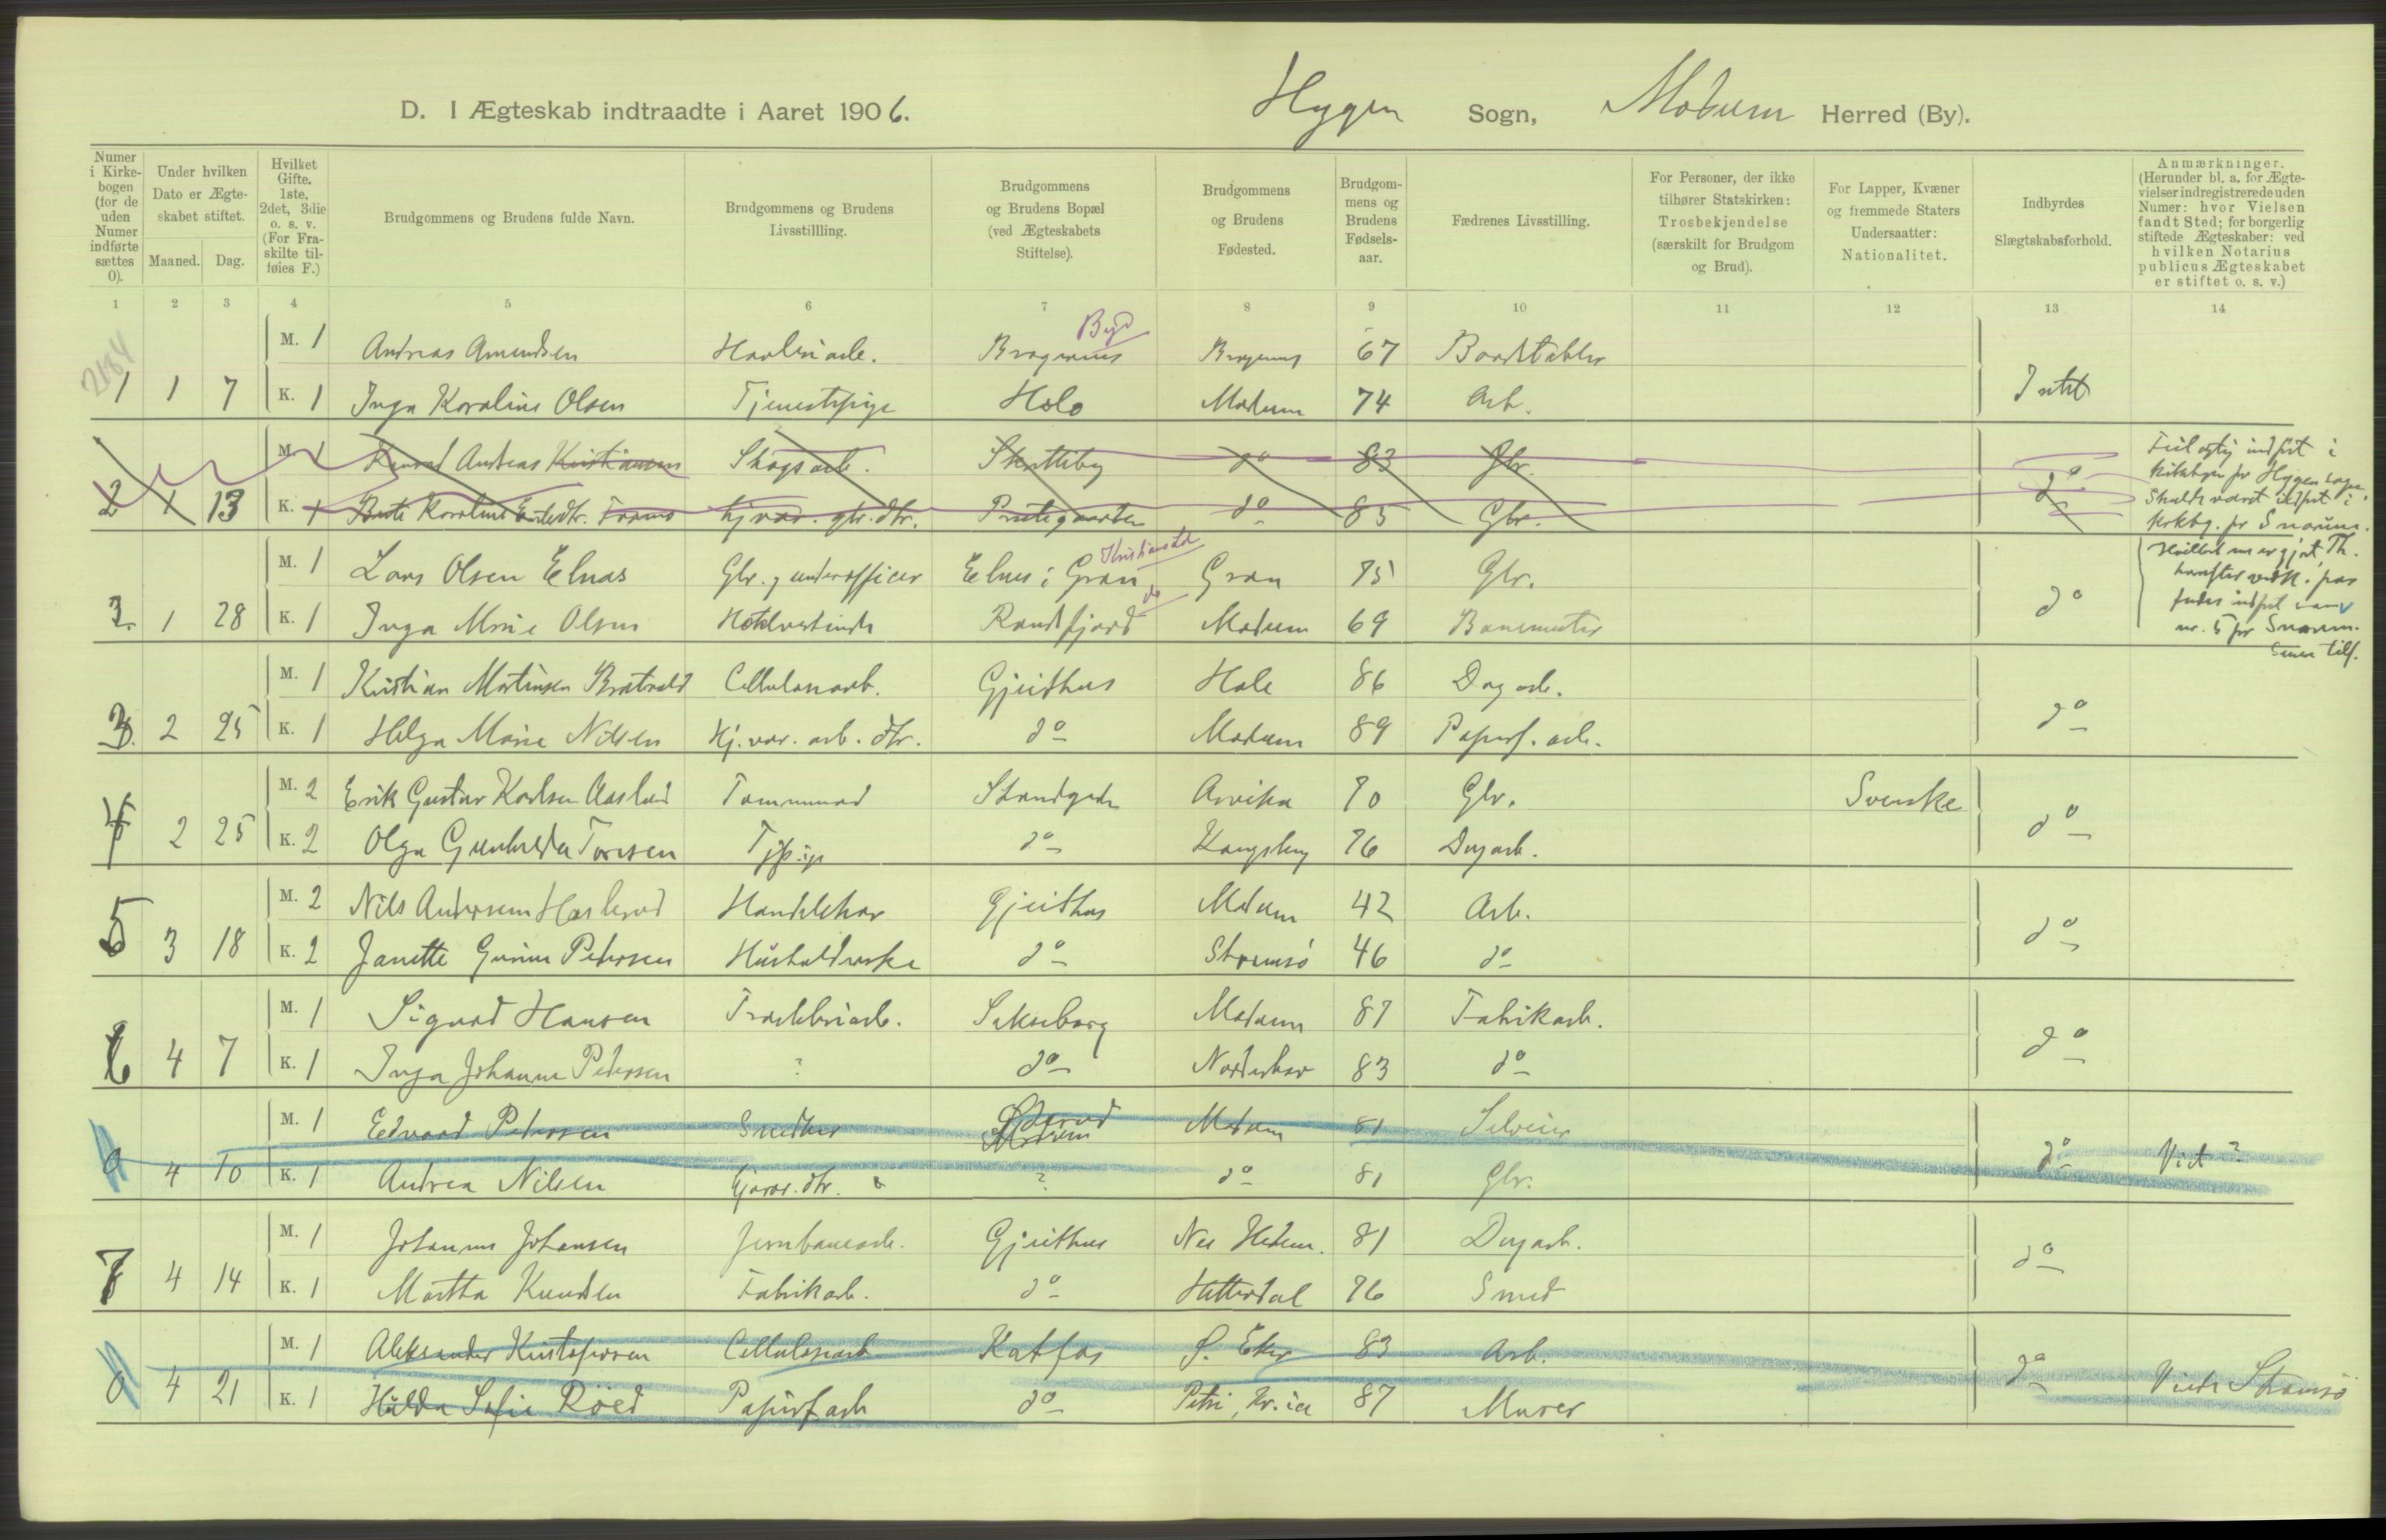 D. I Ægteskab indtraadte i Aaret 1906. Hyggen Sogn, Modum Herred (By).
Numer i Kirkebogen (for de uden Numer indførte sættes 0).
Under hvilken Dato er Ægteskabet stiftet.
Maaned. Dag.
Hvilket Gifte. 1ste, 2det, 3die o. s. v. (For Fraskilte tilføies F.)
Brudgommens og Brudens fulde Navn.
Brudgommens og Brudens Livsstillling.
Brudgommens og Brudens Bopæl (ved Ægteskabets Stiftelse).
Brudgommens og Brudens Fødested.
Brudgommens og Brudens Fødselsaar.
Fædrenes Livsstilling.
For Personer, der ikke tilhører Statskirken: Trosbekjendelse (særskilt for Brudgom og Brud).
For Lapper, Kvæner og fremmede Staters Undersaatter: Nationalitet.
Indbyrdes Slægtskabsforhold.
Anmærkninger. (Herunder bl. a. for Ægtevielser indregistrerede uden Numer: hvor Vielsen fandt Sted; for borgerlig stiftede Ægteskaber: ved hvilken Notarius publicus Ægteskabet er stiftet o. s. v.)
1 2 3 4 5 6 7 8 9 10 11 12 13 14
2184
M. 1 Andreas Amundsen Høvleriarb. Bragernes By Bragernes 67
1 1 7 K. 1 Inga Karoline Olsen Tjenestepige Holo Modum 74 Arb. Intet
M. 1 Konrad Andreas Kristiansen Skogsarb. do 83 Gbr.
2 1 13 K. 1 Karoline Hj. vær. gbr. dtr. do 85 Gbr. do
Feilagtig indført i kirkebogen for Hyggen sogn. Skulde været indført i kirkbg. for Snarum.
M. 1 Lars Olsen Elnæs Gbr. og underofficer Elnes i Gran Kristians Gran 75 Gbr.
3 1 28 K. 1 Inga Marie Olsen Hotelvertinde Randsfjord do Modum 69 Banemester do
nr. 5 for Snarum.
M. 1 Kristian Martinsen Cellulosearb. Gjeithus Hole 86 Dagarb.
3. 2 25 K. 1 Helga Marie Nilsen Hj. vær. arb. dtr. do Modum 89 Papirf. arb. do
M. 2 Erik Gustav Karlsen Aaslund Tømmermand Strandgaden Arvika 70 Gbr. Svenske
4 2 25 K. 2 Olga Gunhilda Toresen Tjpige do Kongsberg 76 Dagarb. do
M. 2 Nils Andersen Haslerud Handelskar Gjeithus Modum 42 Arb.
5 3 18 K. 2 Janette Gurine Petersen Husholderske do Strømsø 46 do do
M. 1 Sigurd Hansen Træsliberiarb. Sakseborg Modum 87 Fabrikarb.
6 4 7 K. 1 Inga Johanne Petersen ? do Norderhov 83 do do
M. 1 Edvard Petersen Snedker Modum 81
0 4 10 K. 1 Andrea Nilsen Hj. vær. dtr. ? do 81 Gbr. do Viet ?
M. 1 Johannes Johansen Jernbanearb. Gjeithus Nes Hedem. 81 Dagarb.
7 4 14 K. 1 Martha Knudsen Fabrikarb. do Hitterdal 76 Smed do
M. 1 Aleksander Kristofersen Cellulosearb. Katfos Ø. Eker 83 Arb.
0 4 21 K. 1 Hulda Sofie Röed Papirfarb do Petri, Kr.ia 87 Murer do Viede Strømsø